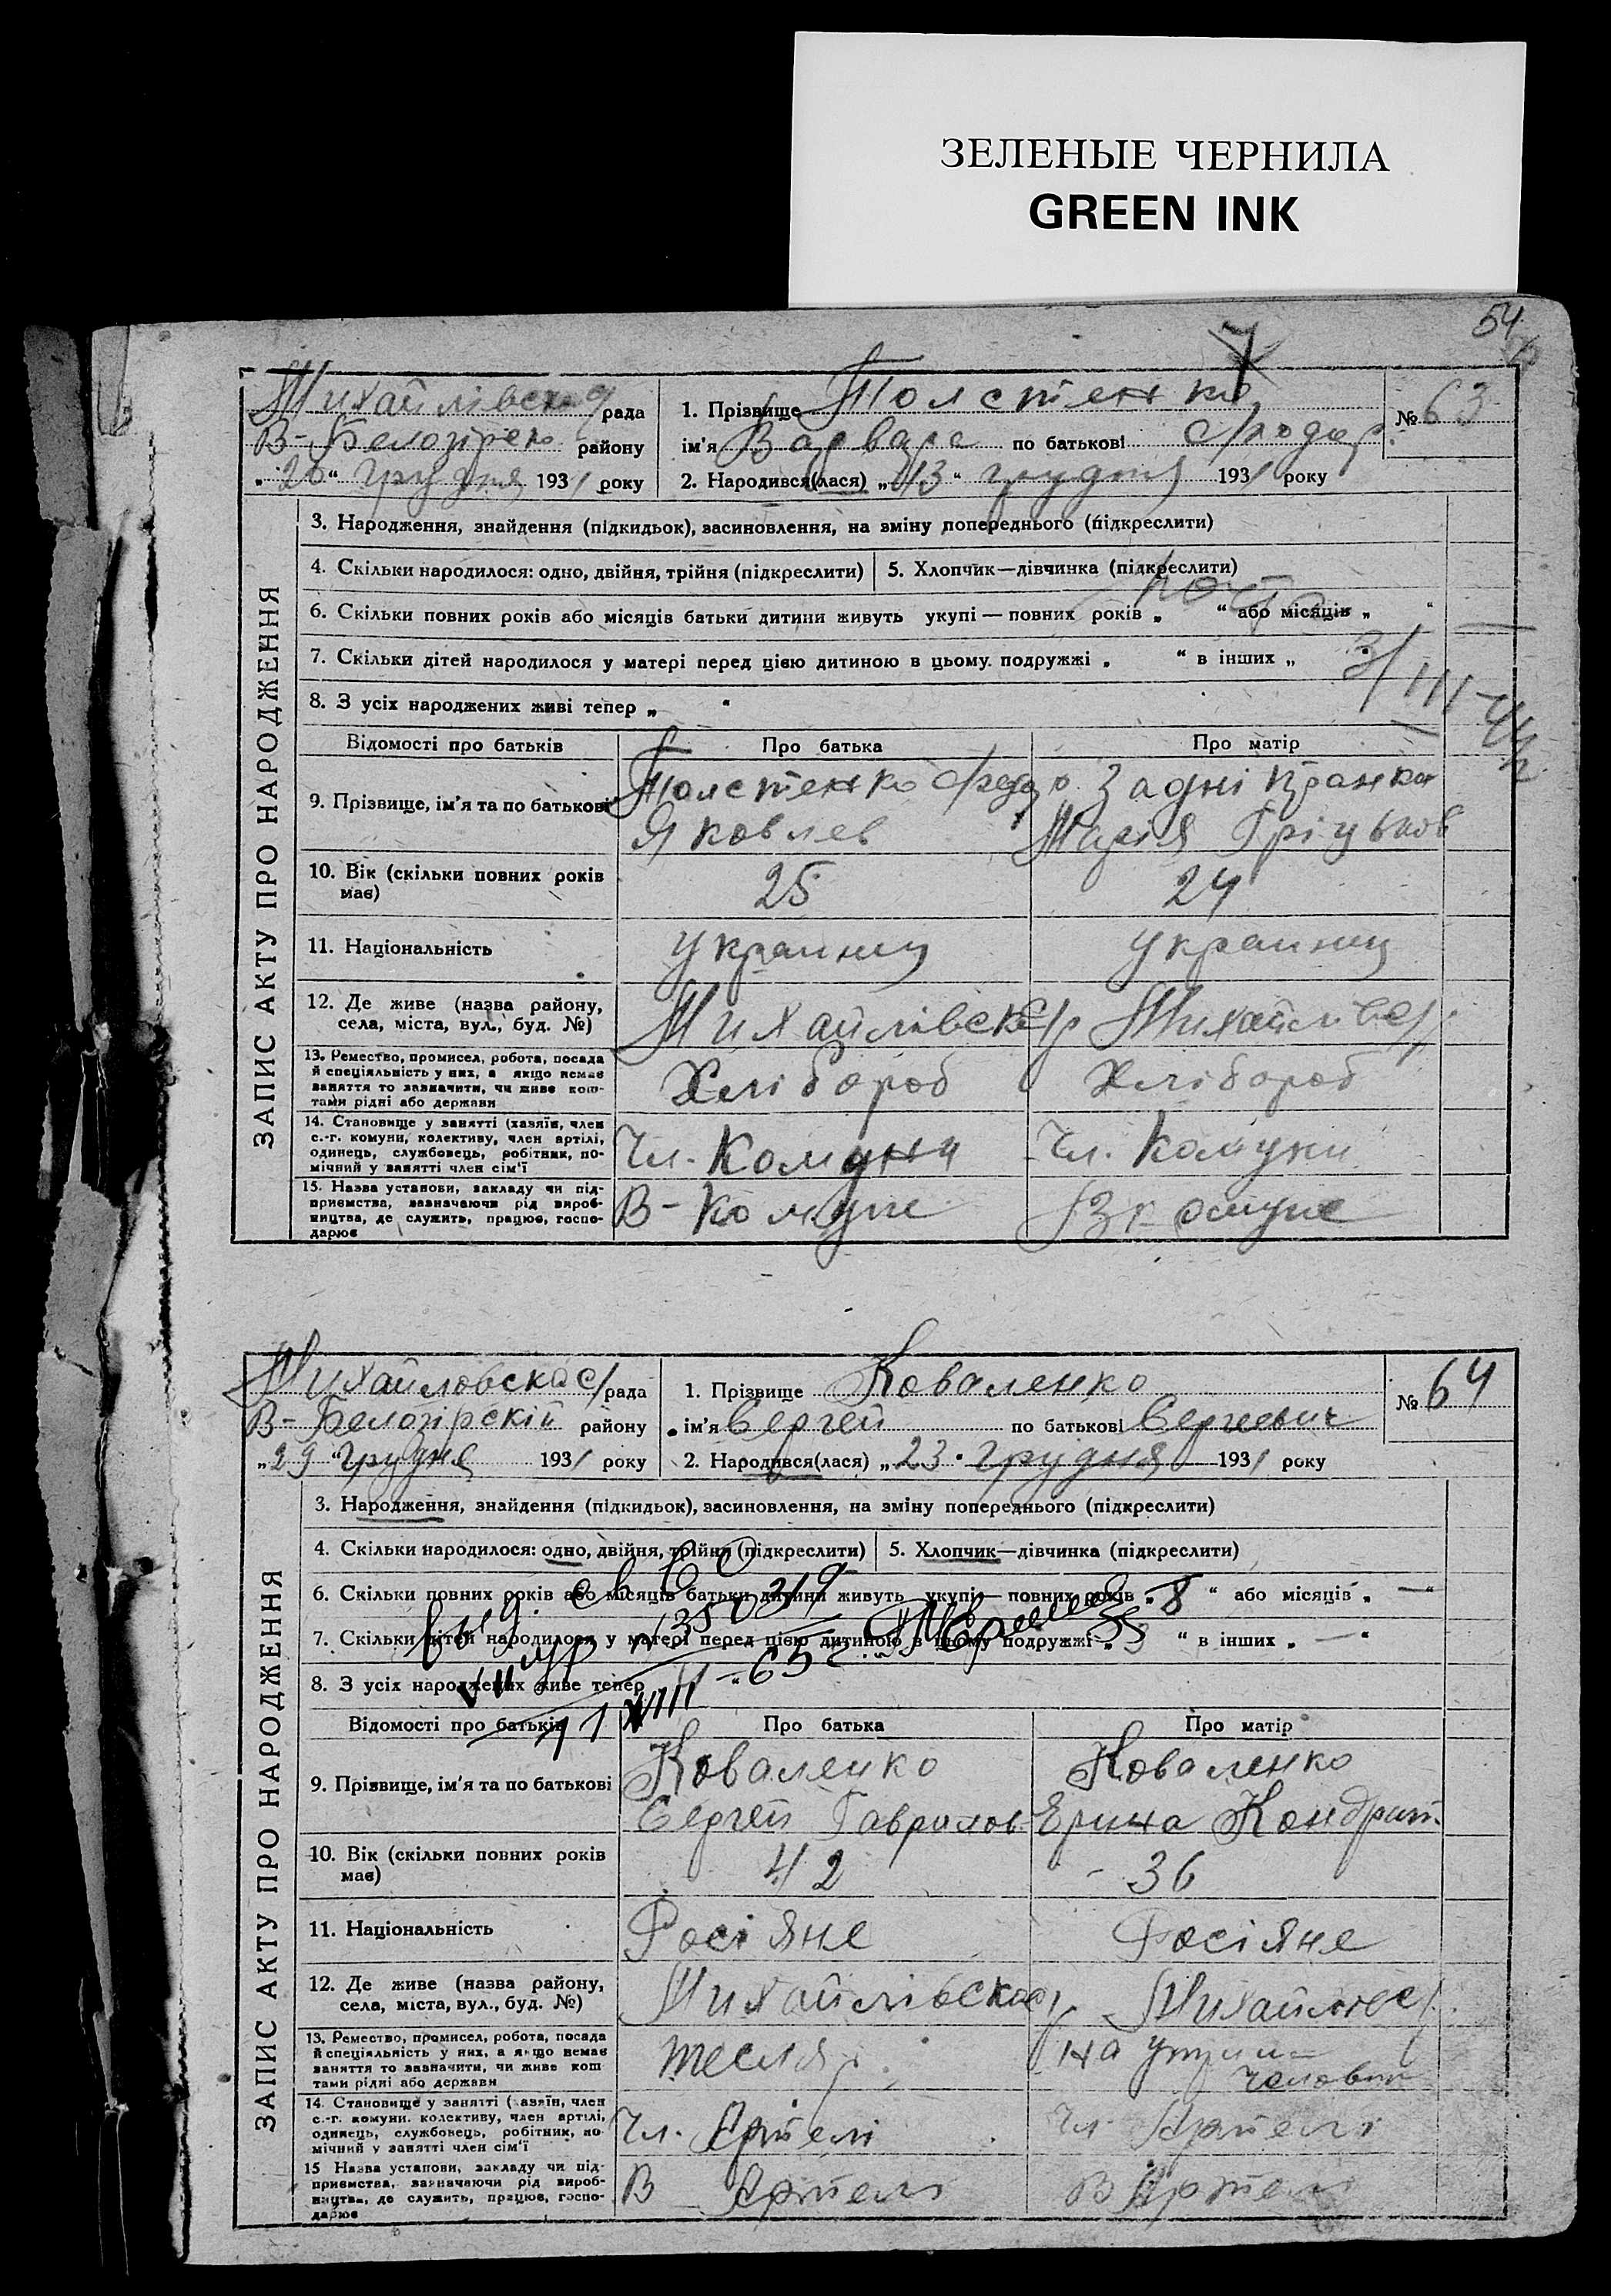 ЗЕЛЕНЫЕ ЧЕРНИЛА
GREEN INK
54
Михайлівска рада
1. Прізвище Толстенко
№ 63
В-Белозірско району
ім'я Варвара по батькові Фродор.
„20“ грудня 1931 року
2. Народився(лася) „13“ грудня 1931 року
ЗАПИС АКТУ ПРО НАРОДЖЕННЯ
3. Народження, знайдення (підкидьок), засиновлення, на зміну попереднього (підкреслити)
4. Скільки народилося: одно, двійня, трійня (підкреслити)
5. Хлопчик—дівчинка (підкреслити)
6. Скільки повних років або місяців батьки дитини живуть укупі — повних років „ “ або місяців „ “
7. Скільки дітей народилося у матері перед цією дитиною в цьому. подружжі „ “ в інших „
3/III-44
8. З усіх народжених живі тепер „ “
Відомості про батьків
Про батька
Про матір
9. Прізвище, ім'я та по батькові
Толстенко Фредор
Яковлев
Задніпранка
Марія Гріцьков
10. Вік (скільки повних років має)
25
24
11. Національність
украинец
украинец
12. Де живе (назва району, села, міста, вул., буд. №)
Михайлівска с/р
Михайлівс с/р.
13. Ремество, промисел, робота, посада й спеціяльність у них, а якщо немає заняття то зазначити, чи живе коштами рідні або держави
Хлібороб
Хлібороб
14. Становище у занятті (хазяїн, член с.-г. комуни, колективу, член артілі, одинець, службовець, робітник, помічний у занятті член сім'ї
Чл. Комуни
Чл. Комуни
15. Назва установи, закладу чи підприємства, зазначаючи рід виробництва, де служить, працює, господарює
В-Комуне
В комуне
Михайловска с/рада
1. Прізвище Коваленко
№ 64
В-Белозірскій району
ім'я Сергей по батькові Сергеевич
„29“ грудня 1931 року
2. Народився(лася) „23“ грудня 1931 року
ЗАПИС АКТУ ПРО НАРОДЖЕННЯ
3. Народження, знайдення (підкидьок), засиновлення, на зміну попереднього (підкреслити)
4. Скільки народилося: одно, двійня, трійня (підкреслити)
5. Хлопчик—дівчинка (підкреслити)
6. Скільки повних років або місяців батьки дитини живуть укупі — повних років „8“ або місяців „—“
7. Скільки дітей народилося у матері перед цією дитиною в цьому подружжі „3“ в інших „—“
8. З усіх народжених живе тепер
Відомості про батьків
Про батька
Про матір
9. Прізвище, ім'я та по батькові
Коваленко
Сергей Гаврилов
Коваленко
Ерина Кондрат.
10. Вік (скільки повних років має)
42
36
11. Національність
Росіяне
Росіяне
12. Де живе (назва району, села, міста, вул., буд. №)
Михайлівска с/р
Михайловс с/р.
13. Ремество, промисел, робота, посада й спеціяльність у них, а якщо немає заняття то зазначити, чи живе кош тами рідні або держави
тесляр.
на утрим
человек
14. Становище у занятті (хазяїн, член с.-г. комуни. колективу, член артілі, одинець, службовець, робітник, помічний у занятті член сім'ї
Чл. Артелі
Чл Артелі
15 Назва установи, закладу чи підприємства, зазначаючи рід виробництва, де служить, працює, господарює
В Артелі
В Артелі